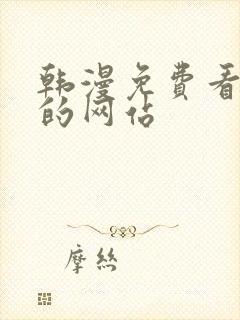 韩漫免费看
的网站
摩丝